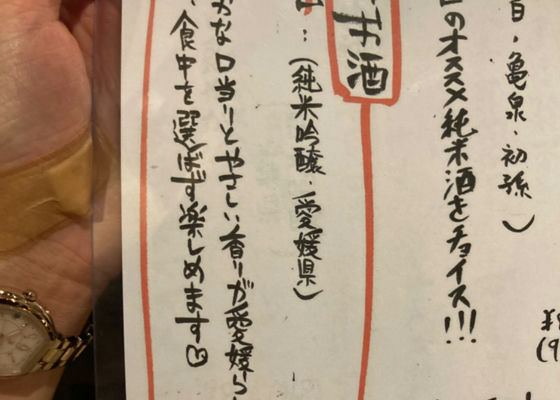 目・亀泉・初孫)
のオススメ純米酒をチョイス!!!
お酒
:(純米吟醸・愛媛県)
な口当りとやさしい香りが愛媛ら
食中を選ばず楽しめます